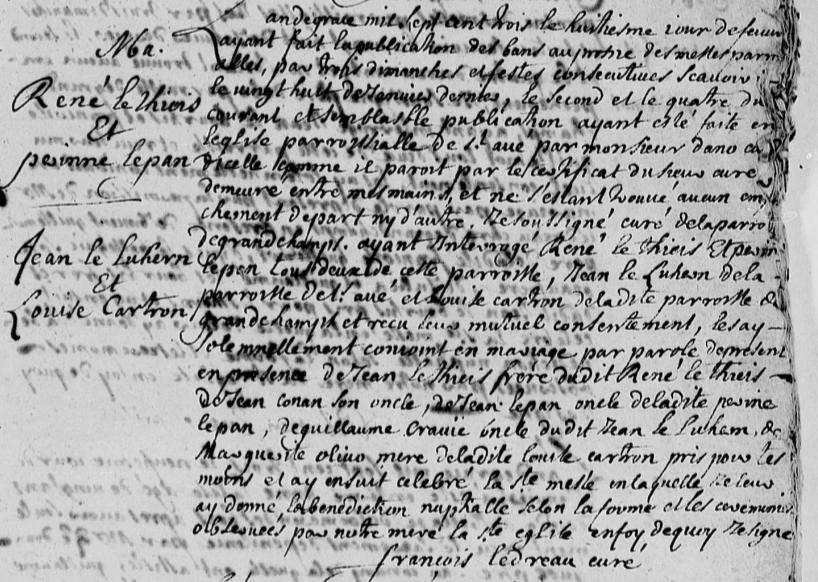 Ma.
René le thieis
Et
perinne lepan
Jean le Luhern
Et
Louise Cartron
Lan de grace mil sept cent trois le huitiesme iour de feuur
ayant fait la publication des bans au prosne des messes parroi
alles, par trois dimanches et festes consecutiues scauoir
le vingt huit de Jenuier dernier, le second et le quatre du
courant et semblable publication ayant esté faite en
leglise parroissialle de st aué par monsieur dano cu
dicelle comme il paroit par le certificat du sieur curé
demeuré entre mes mains, et ne s'estant trouué aucun em
chement de part ny d'autre. Je soussigné curé de la parroi
de grandchamps. ayant Interrogé René le thieis Et perin
lepan tous deux de cette parroisse, Jean le Luhern de la
parroisse de st aué et Louise cartron de la dite parroisse de
grandchamps et recu leur mutuel consentement, les ay
solemnellement conioint en mariage par parole de present
en presence de Jean le thieis frere dudit René le thieis
de Jean conan son oncle, de Jean lepan oncle de la dite perine
lepan, de guillaume Crauic oncle dudit Jean le Luhern, de
Marguerite oliuo mere de la dite louise cartron pris pour tes
moins et ay ensuit celebré la ste messe en laquelle Je leur
ay donné la benediction nuptialle selon la forme et les ceremonies
obseruées par notre mere la ste eglise en foy de quoy Je signe
francois ledreau curé